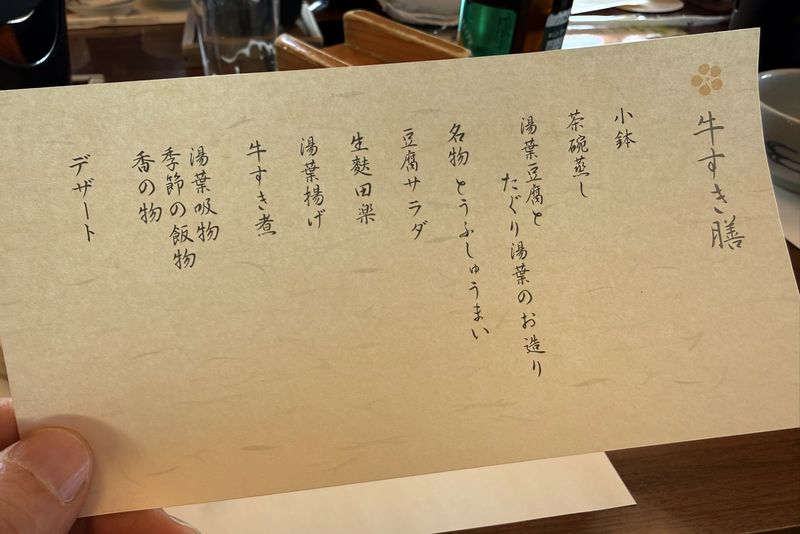 牛すき膳
小鉢
茶碗蒸し
湯葉豆腐と
たぐり湯葉のお造り
名物 とうふしゅうまい
豆腐サラダ
生麩田楽
湯葉揚げ
牛すき煮
湯葉吸物
季節の飯物
香の物
デザート